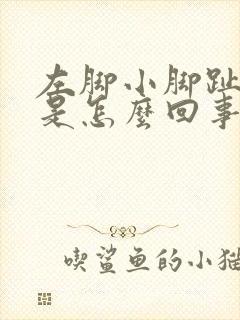 左脚小脚趾
是怎麼回事
喫鲨鱼的小猫